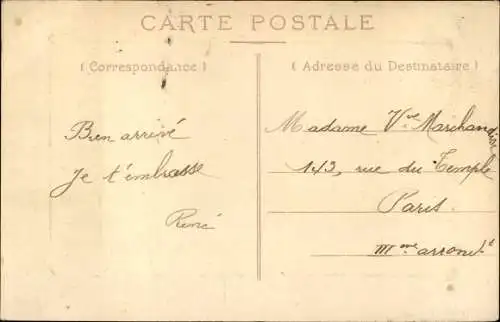 CARTE POSTALE
(Correspondance)
Bien arrivé
Je t'embrasse
René
(Adresse du Destinataire)
Madame Vve Marchandise
143, rue du Temple
Paris.
IIIme arrondt